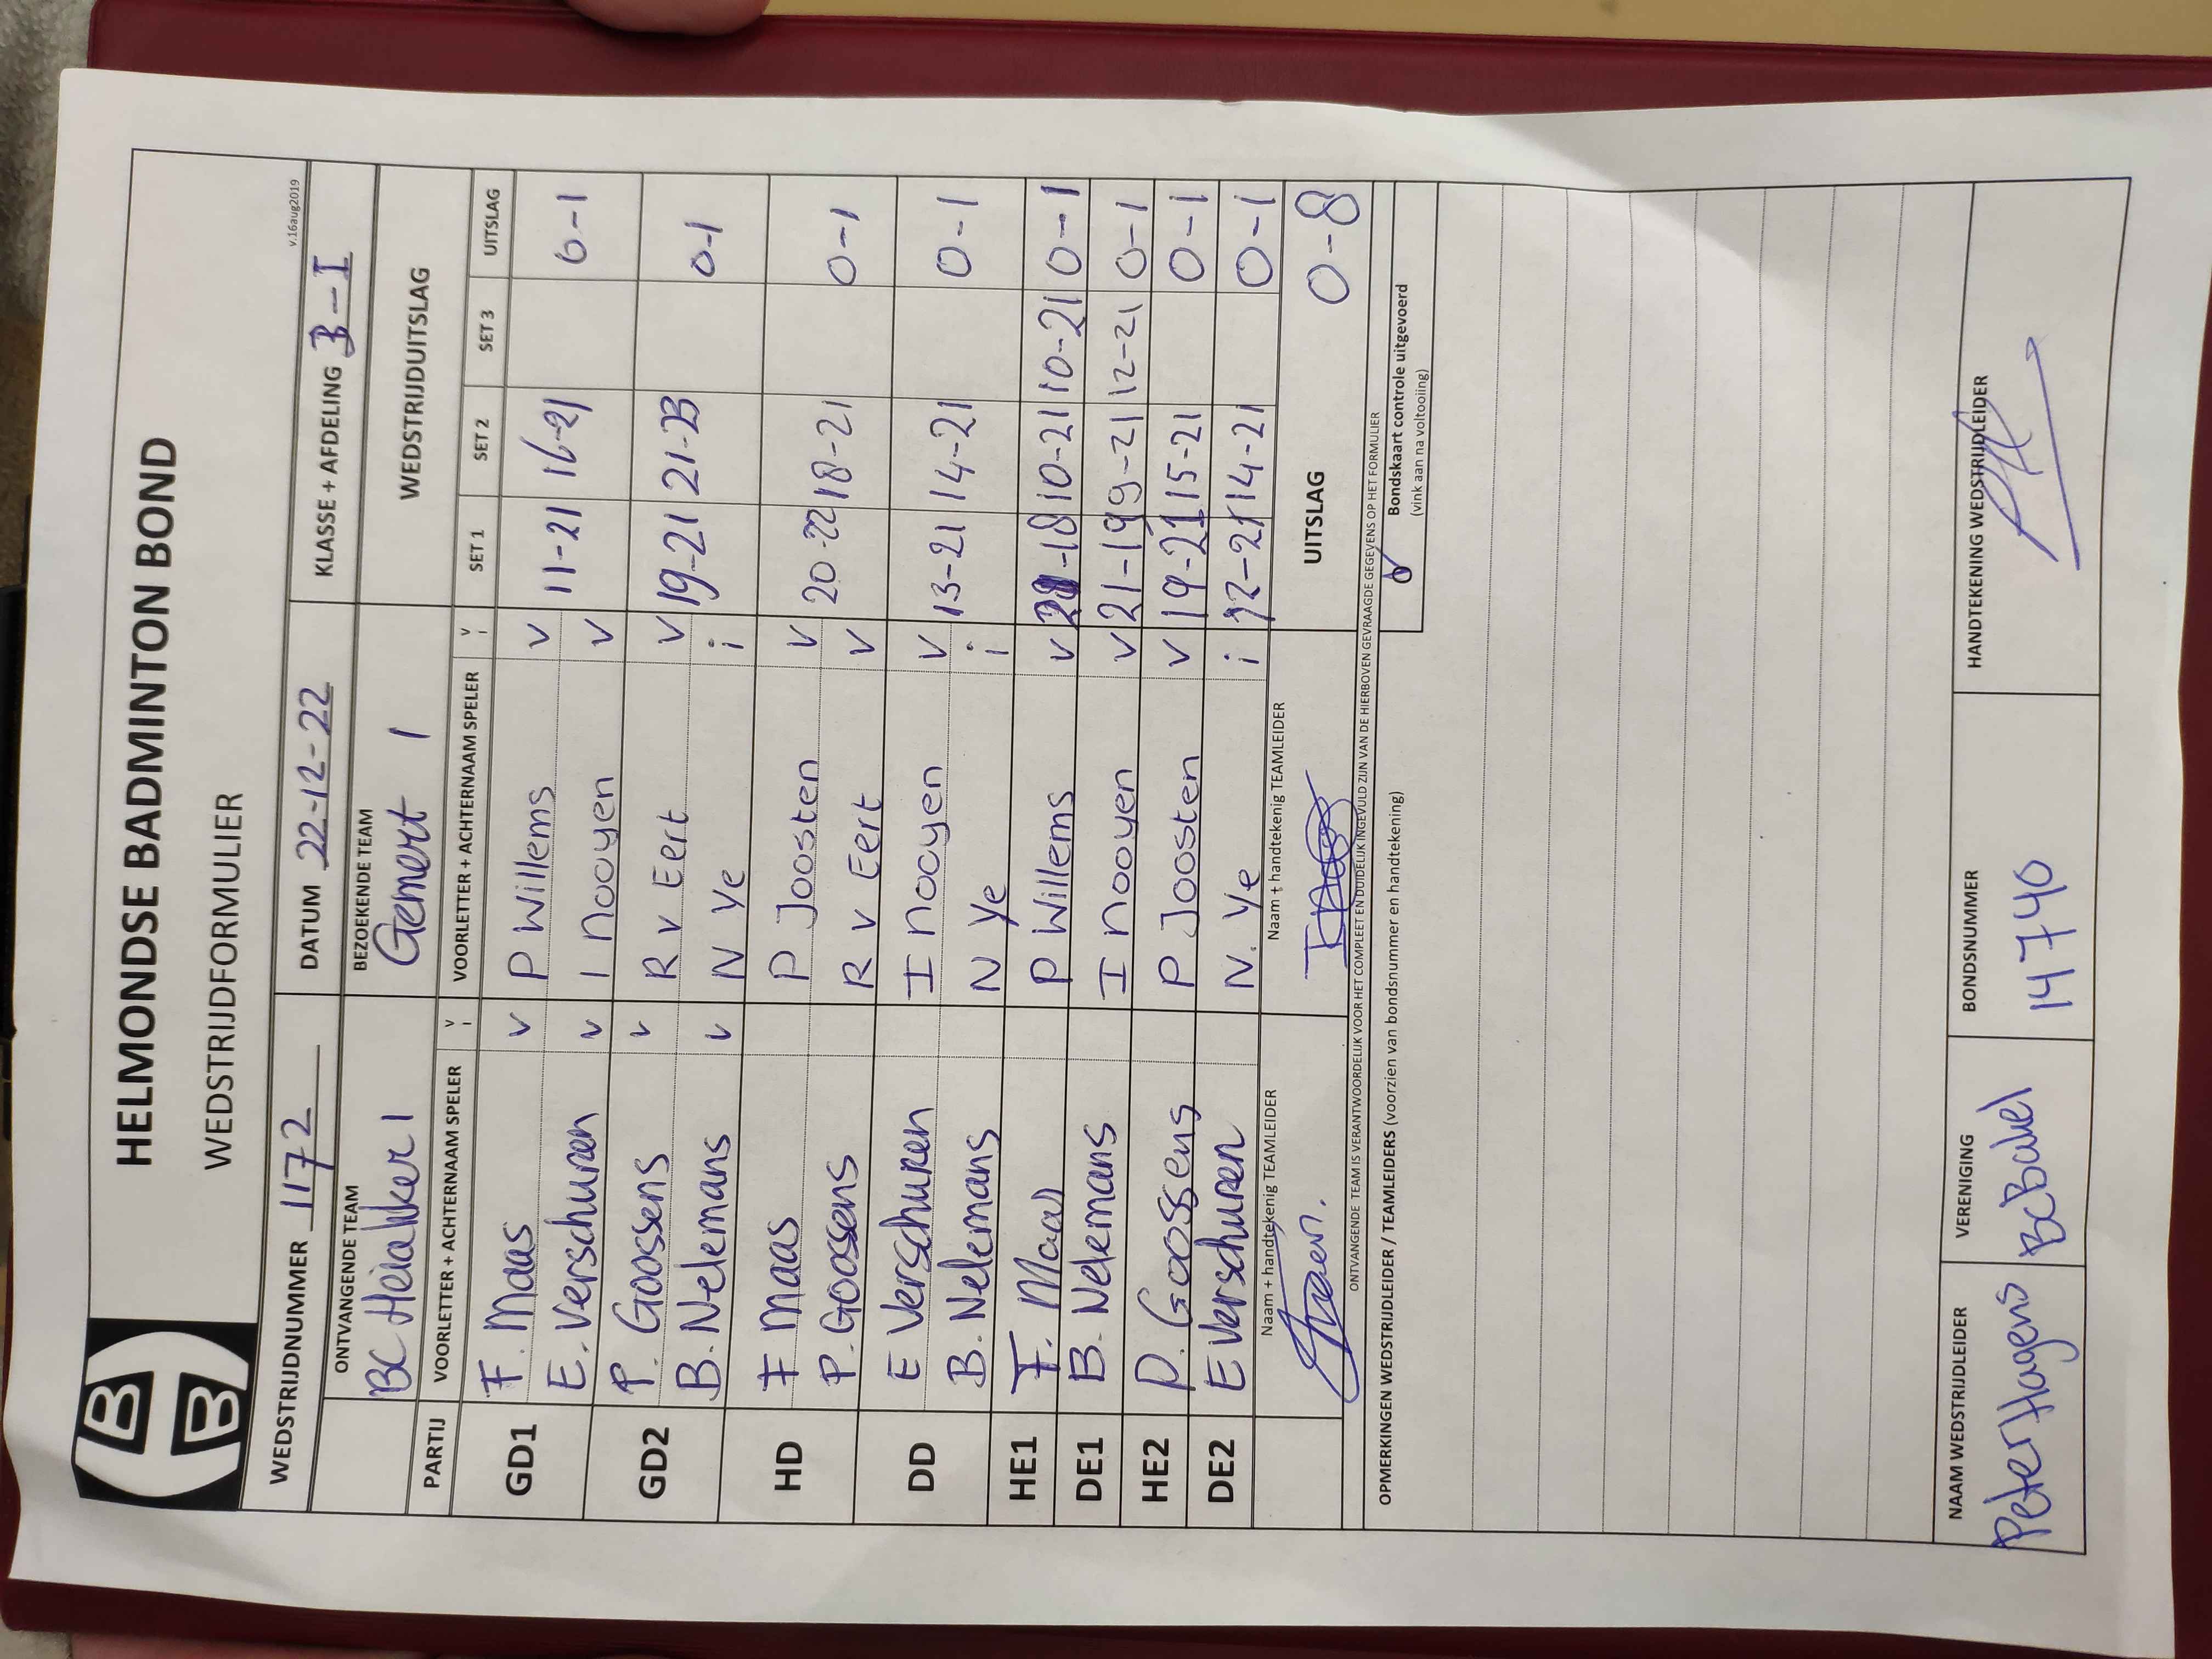 HELMONDSE BADMINTON BOND
WEDSTRIJDFORMULIER
v.16aug2019
WEDSTRIJDNUMMER 1172 DATUM 22-12-22 KLASSE + AFDELING 3-I
ONTVANGENDE TEAM BEZOEKENDE TEAM WEDSTRIJDUITSLAG
BC 1 Gemert 1
PARTIJ VOORLETTER + ACHTERNAAM SPELER V i VOORLETTER + ACHTERNAAM SPELER V i SET 1 SET 2 SET 3 UITSLAG
GD1 F. Maas v P Willems v 11-21 16-21 0-1
E. Verschuren v I nooyen v
GD2 P. Goossens v R v Eert v 19-21 21-23 0-1
B. Nelemans v N Ye i
HD F Maas P Joosten v 20-22 18-21 0-1
P. Goossens R v Eert v
DD E Verschuren I nooyen v 13-21 14-21 0-1
B. Nelemans N Ye i
HE1 F. Maas P Willems v 21-18 10-21 10-21 0-1
DE1 B. Nelemans I nooyen v 21-19 9-21 12-21 0-1
HE2 P. Goossens P Joosten v 19-21 15-21 0-1
DE2 E Verschuren N. Ye i 12-21 14-21 0-1
Naam + handtekenig TEAMLEIDER Naam + handtekenig TEAMLEIDER UITSLAG 0-8
ONTVANGENDE TEAM IS VERANTWOORDELIJK VOOR HET COMPLEET EN DUIDELIJK INGEVULD ZIJN VAN DE HIERBOVEN GEVRAAGDE GEGEVENS OP HET FORMULIER
OPMERKINGEN WEDSTRIJDLEIDER / TEAMLEIDERS (voorzien van bondsnummer en handtekening)
Bondskaart controle uitgevoerd
(vink aan na voltooiing)
NAAM WEDSTRIJDLEIDER VERENIGING BONDSNUMMER HANDTEKENING WEDSTRIJDLEIDER
Peter Hagens BC Bakel 14740